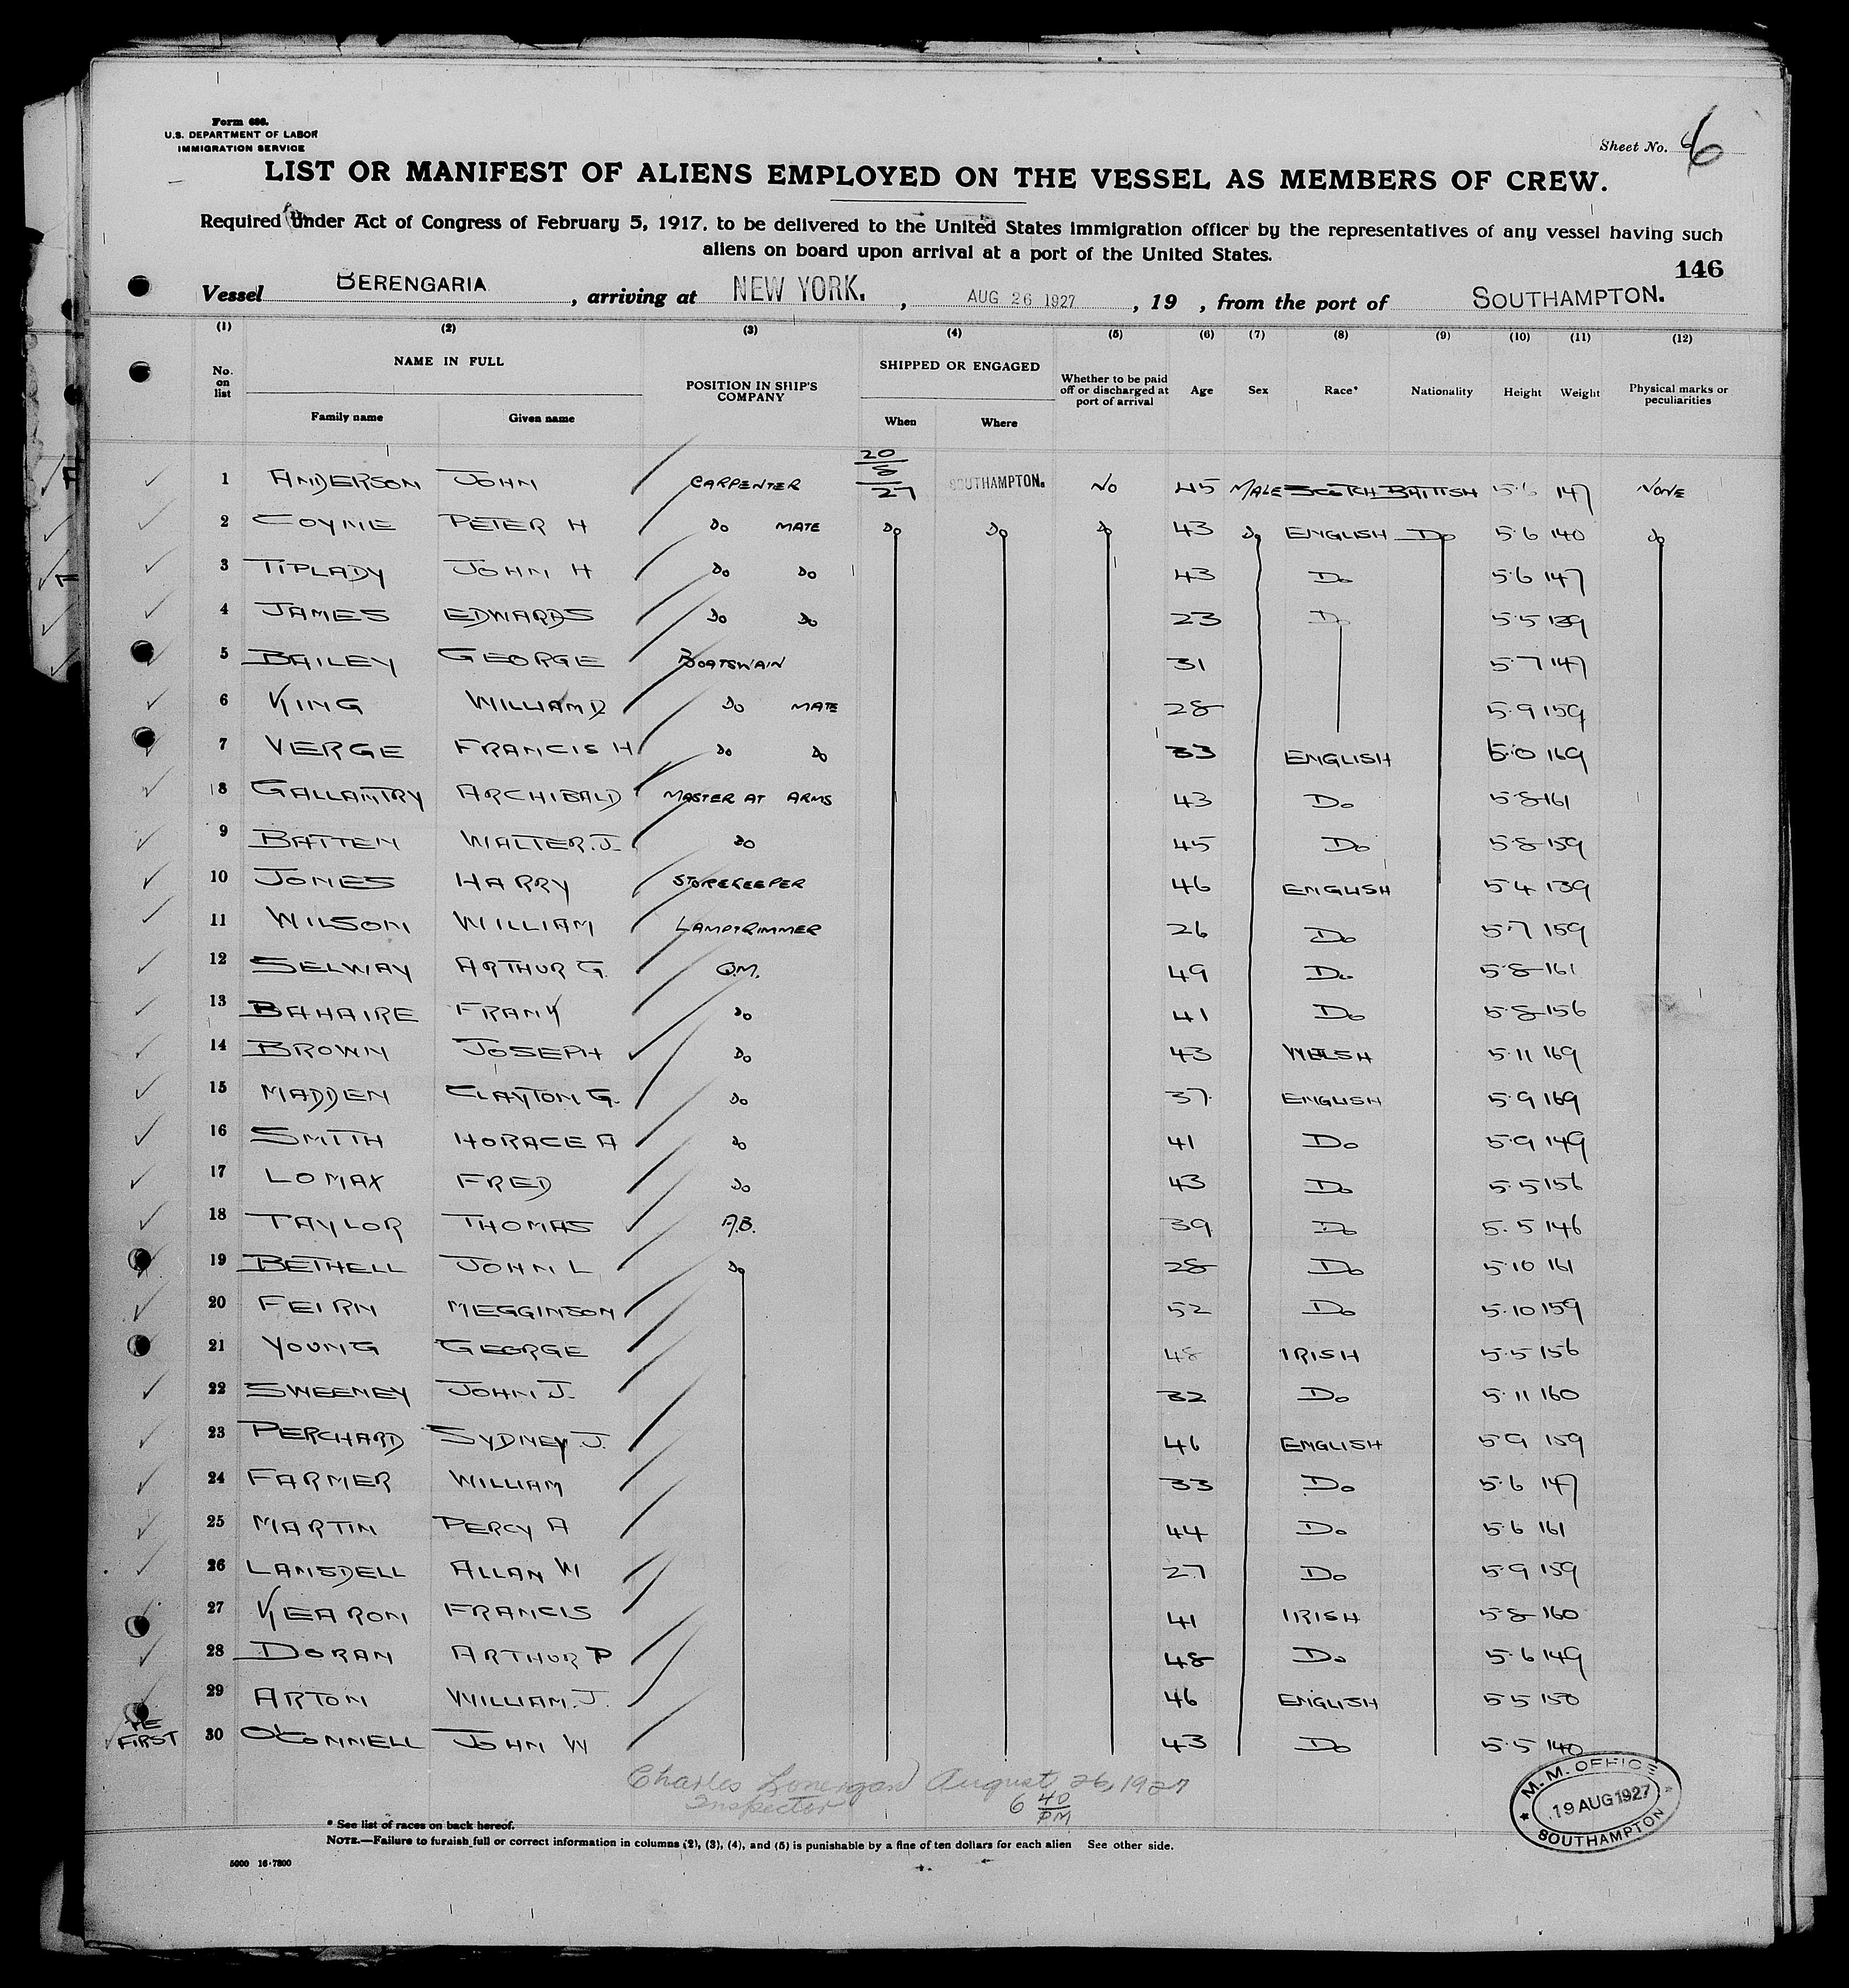 Form 686.
U.S. DEPARTMENT OF LABOR
IMMIGRATION SERVICE
Sheet No. 6
LIST OR MANIFEST OF ALIENS EMPLOYED ON THE VESSEL AS MEMBERS OF CREW.
Required under Act of Congress of February 5, 1917, to be delivered to the United States immigration officer by the representatives of any vessel having such
aliens on board upon arrival at a port of the United States.
146
Vessel BERENGARIA, arriving at NEW YORK., AUG 26 1927, 19 , from the port of SOUTHAMPTON.
(1) (2) (3) (4) (5) (6) (7) (8) (9) (10) (11) (12)
No. on list NAME IN FULL Family name Given name POSITION IN SHIP'S COMPANY SHIPPED OR ENGAGED When Where Whether to be paid off or discharged at port of arrival Age Sex Race* Nationality Height Weight Physical marks or peculiarities
1 ANDERSON JOHN CARPENTER 20/8/27 SOUTHAMPTON. NO 45 MALE SCOTCH BRITISH 5.6 147 NONE
2 COYNE PETER H DO MATE DO DO DO 43 DO ENGLISH DO 5.6 140 DO
3 TIPLADY JOHN H DO DO 43 DO 5.6 147
4 JAMES EDWARDS DO DO 23 DO 5.5 139
5 BAILEY GEORGE BOATSWAIN 31 5.7 147
6 KING WILLIAM D DO MATE 28 5.9 159
7 VERGE FRANCIS H DO DO 33 ENGLISH 6.0 169
8 GALLANTRY ARCHIBALD MASTER AT ARMS 43 DO 5.8 161
9 BATTEN WALTER.J. DO 45 DO 5.8 159
10 JONES HARRY STOREKEEPER 46 ENGLISH 5.4 139
11 WILSON WILLIAM LAMPTRIMMER 26 DO 5.7 159
12 SELWAY ARTHUR G. Q.M. 49 DO 5.8 161
13 BAHAIRE FRANK DO 41 DO 5.8 156
14 BROWN JOSEPH DO 43 WELSH 5.11 169
15 MADDEN CLAYTON G. DO 37 ENGLISH 5.9 169
16 SMITH HORACE A DO 41 DO 5.9 149
17 LOMAX FRED DO 43 DO 5.5 156
18 TAYLOR THOMAS A.B. 39 DO 5.5 146
19 BETHELL JOHN L DO 28 DO 5.10 161
20 FEIRN MEGGINSON 52 DO 5.10 159
21 YOUNG GEORGE 48 IRISH 5.5 156
22 SWEENEY JOHN J. 32 DO 5.11 160
23 PERCHARD SYDNEY.J. 46 ENGLISH 5 9 159
24 FARMER WILLIAM 33 DO 5.6 147
25 MARTIN PERCY A 44 DO 5.6 161
26 LANSDELL ALLAN W 27 DO 5.9 159
27 KEARON FRANCIS 41 IRISH 5.8 160
28 DORAN ARTHUR P 48 DO 5.6 149
29 ARTON WILLIAM.J. 46 ENGLISH 5 5 150
FIRST 30 O'CONNELL JOHN W 43 DO 5.5 140
Charles Lonergan August 26, 1927
Inspector 6 40 PM
M. M. OFFICE
19 AUG 1927
SOUTHAMPTON
* See list of races on back hereof.
NOTE.—Failure to furnish full or correct information in columns (2), (3), (4), and (5) is punishable by a fine of ten dollars for each alien See other side.
5000 16-7800